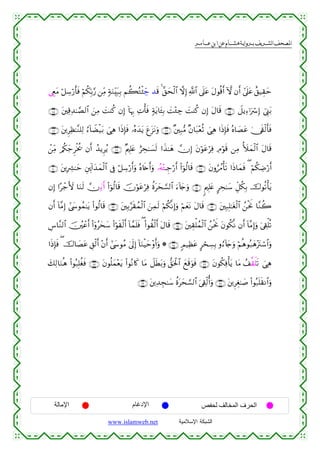 المصحف الشريف برواية هشام عن ابن عامر
حَقِيقٌ عَلَىٰٓ أَن لَّآ أَقُولَ عَلَى ٱللَّهِ إِلَّا ٱلْحَقَّ ۚ قَدْ جِئْتُكُم بِبَيِّنَةٍ مِّن رَّبِّكُمْ فَأَرْسِلْ مَعِي
بَنِيٓ إِسْرَٰٓءِيلَ ۝ قَالَ إِن كُنتَ جِئْتَ بِـَٔايَةٍ فَأْتِ بِهَآ إِن كُنتَ مِنَ ٱلصَّٰدِقِينَ ۝
فَأَلْقَىٰ عَصَاهُ فَإِذَا هِىَ ثُعْبَانٌ مُّبِينٌ ۝ وَنَزَعَ يَدَهُۥ فَإِذَا هِىَ بَيْضَآءُ لِلنَّٰظِرِينَ ۝
قَالَ ٱلْمَلَأُ مِن قَوْمِ فِرْعَوْنَ إِنَّ هَٰذَا لَسَٰحِرٌ عَلِيمٌ ۝ يُرِيدُ أَن يُخْرِجَكُم مِّنْ
أَرْضِكُمْ ۖ فَمَاذَا تَأْمُرُونَ ۝ قَالُوٓا۟ أَرْجِئْهُۥ وَأَخَاهُ وَأَرْسِلْ فِى ٱلْمَدَآئِنِ حَٰشِرِينَ ۝
يَأْتُوكَ بِكُلِّ سَٰحِرٍ عَلِيمٍ ۝ وَجَآءَ ٱلسَّحَرَةُ فِرْعَوْنَ قَالُوٓا۟ أَئِنَّ لَنَا لَأَجْرًا إِن
كُنَّا نَحْنُ ٱلْغَٰلِبِينَ ۝ قَالَ نَعَمْ وَإِنَّكُمْ لَمِنَ ٱلْمُقَرَّبِينَ ۝ قَالُوا۟ يَٰمُوسَىٰٓ إِمَّآ أَن
تُلْقِىَ وَإِمَّآ أَن نَّكُونَ نَحْنُ ٱلْمُلْقِينَ ۝ قَالَ أَلْقُوا۟ ۖ فَلَمَّآ أَلْقَوْا۟ سَحَرُوٓا۟ أَعْيُنَ ٱلنَّاسِ
وَٱسْتَرْهَبُوهُمْ وَجَآءُو بِسِحْرٍ عَظِيمٍ ۝ وَأَوْحَيْنَآ إِلَىٰ مُوسَىٰٓ أَنْ أَلْقِ عَصَاكَ ۖ فَإِذَا
هِىَ تَلَقَّفُ مَا يَأْفِكُونَ ۝ فَوَقَعَ ٱلْحَقُّ وَبَطَلَ مَا كَانُوا۟ يَعْمَلُونَ ۝ فَغُلِبُوا۟ هُنَالِكَ
وَٱنقَلَبُوا۟ صَٰغِرِينَ ۝ وَأُلْقِىَ ٱلسَّحَرَةُ سَٰجِدِينَ ۝
الحرف المخالف لحفص الإدغام الإمالة
الشبكة الإسلامية www.islamweb.net